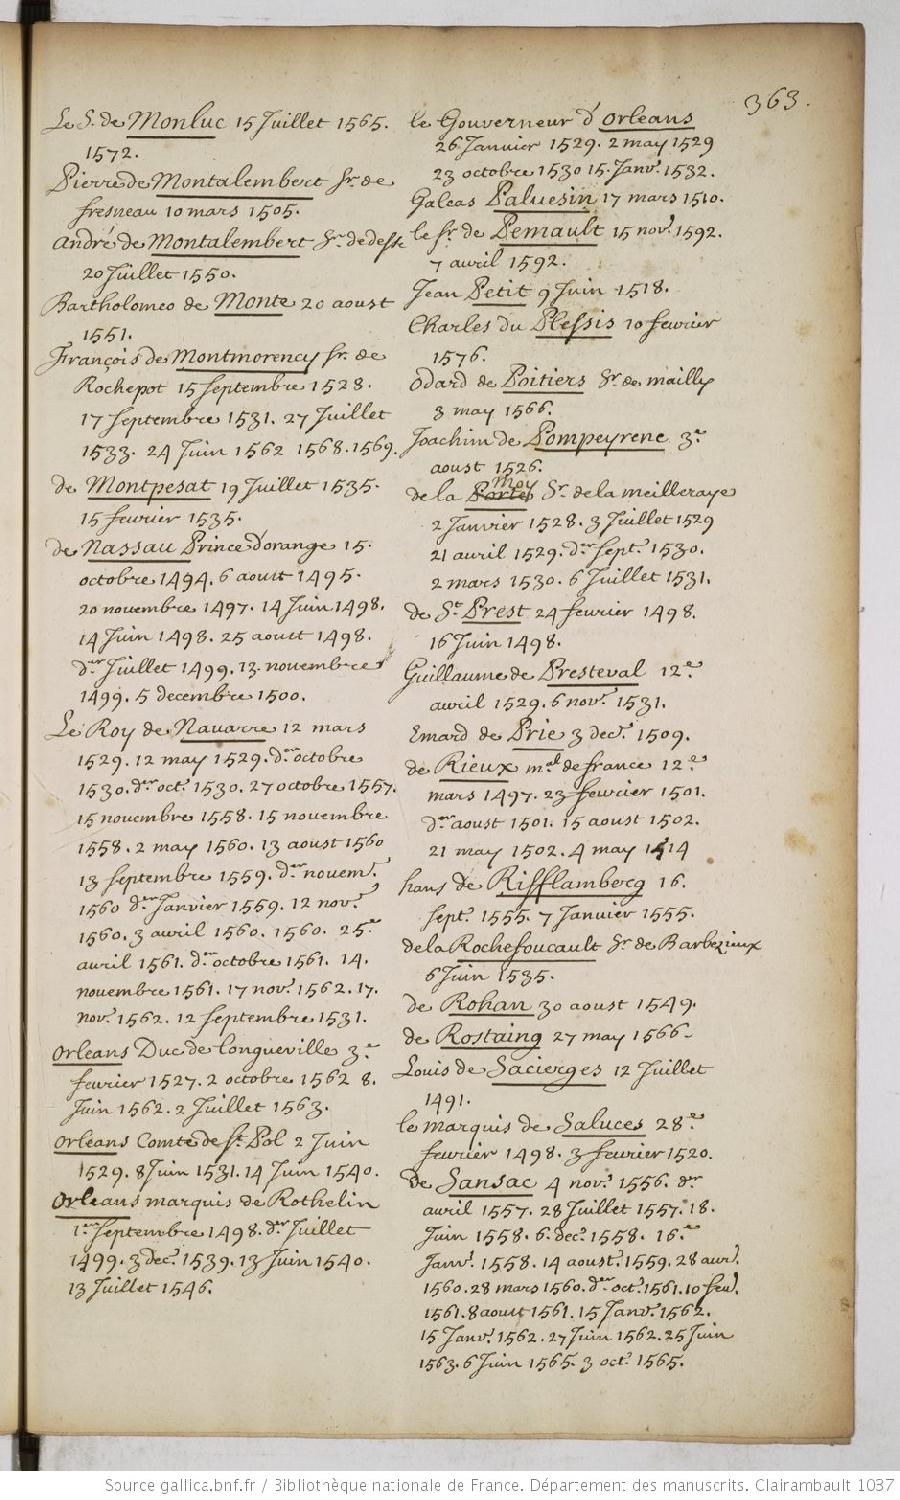 363.
Le S. de Monluc 15 Juillet 1565.
1572.
Pierre de Montalembert Sr. de
fresneau 10 mars 1505.
André de Montalembert Sr. dedesse
20 Juillet 1550.
Bartholomeo de Monte 20 aoust
1551.
François de Montmorency sr. de
Rochepot 15 septembre 1528.
17 septembre 1531. 27 Juillet
1533. 24 Juin 1562 1568. 1569.
de Montpesat 19 Juillet 1535.
15 fevrier 1535.
de Nassau Prince d'orange 15.
octobre 1494. 6 aoust 1495.
20 novembre 1497. 14 Juin 1498.
14 Juin 1498. 25 aoust 1498.
der Juillet 1499. 13. novembre
1499. 5 decembre 1500.
Le Roy de Navarre 12 mars
1529. 12 may 1529. der octobre
1530. der oct. 1530. 27 octobre 1557.
15 novembre 1558. 15 novembre
1558. 2 may 1560. 13 aoust 1560
13 septembre 1559. der novem.
1560 der Janvier 1559. 12 nov.
1560. 3 avril 1560. 1560. 25e
avril 1561. der octobre 1561. 14.
novembre 1561. 17 nov. 1562. 17.
nov. 1562. 12 septembre 1531.
Orleans Duc de longueville 3e
fevrier 1527. 2 octobre 1562 8.
Juin 1562. 2 Juillet 1563.
Orleans Comte de St. Pol 2 Juin
1529. 8 Juin 1531. 14 Juin 1540.
Orleans marquis de Rothelin
1er septembre 1498. der Juillet
1499. 3 dec. 1539. 13 Juin 1540.
13 Juillet 1546.
le Gouverneur d'Orleans
26 Janvier 1529. 2 may 1529
23 octobre 1530 15. Janv. 1532.
Galeas Paluesin 17 mars 1510.
le sr. de Pemault 15 nov. 1592.
7 avril 1592.
Jean Petit 9 Juin 1518.
Charles du Plessis 10 fevrier
1576.
Odard de Poitiers Sr. de mailly
3 may 1566.
Joachim de Pompeyrene 3e
aoust 1526.
moy
de la Porte Sr. de la meilleraye
2 Janvier 1528. 3 Juillet 1529
21 avril 1529. der sept. 1530.
2 mars 1530. 6 Juillet 1531.
de St. Prest 24 fevrier 1498.
16 Juin 1498.
Guillaume de Presteval 12e
avril 1529. 6 nov. 1531.
Emard de Prie 3 dec. 1509.
de Rieux mal. de france 12e
mars 1497. 23 fevrier 1501.
der aoust 1501. 15 aoust 1502.
21 may 1502. 4 may 1514
hans de Rifflamberg 16.
sept. 1555. 7 Janvier 1555.
de la Rochefoucault Sr. de Barbezieux
6 Juin 1535.
de Rohan 30 aoust 1549.
de Rostaing 27 may 1566.
Louis de Sacierges 12 Juillet
1491.
le marquis de Saluces 28e
fevrier 1498. 3 fevrier 1520.
de Sansac 4 nov. 1556. der
avril 1557. 28 Juillet 1557. 18.
Juin 1558. 6. dec. 1558. 16e
Janv. 1558. 14 aoust. 1559. 28 avr.
1560. 28 mars 1560. der oct. 1561. 10 fev.
1561. 8 aoust 1561. 15 Janv. 1562.
15 Janv. 1562. 27 Juin 1562. 25 Juin
1563. 6 Juin 1565. 3 oct. 1565.
Source gallica.bnf.fr / Bibliothèque nationale de France. Département des manuscrits. Clairambault 1037